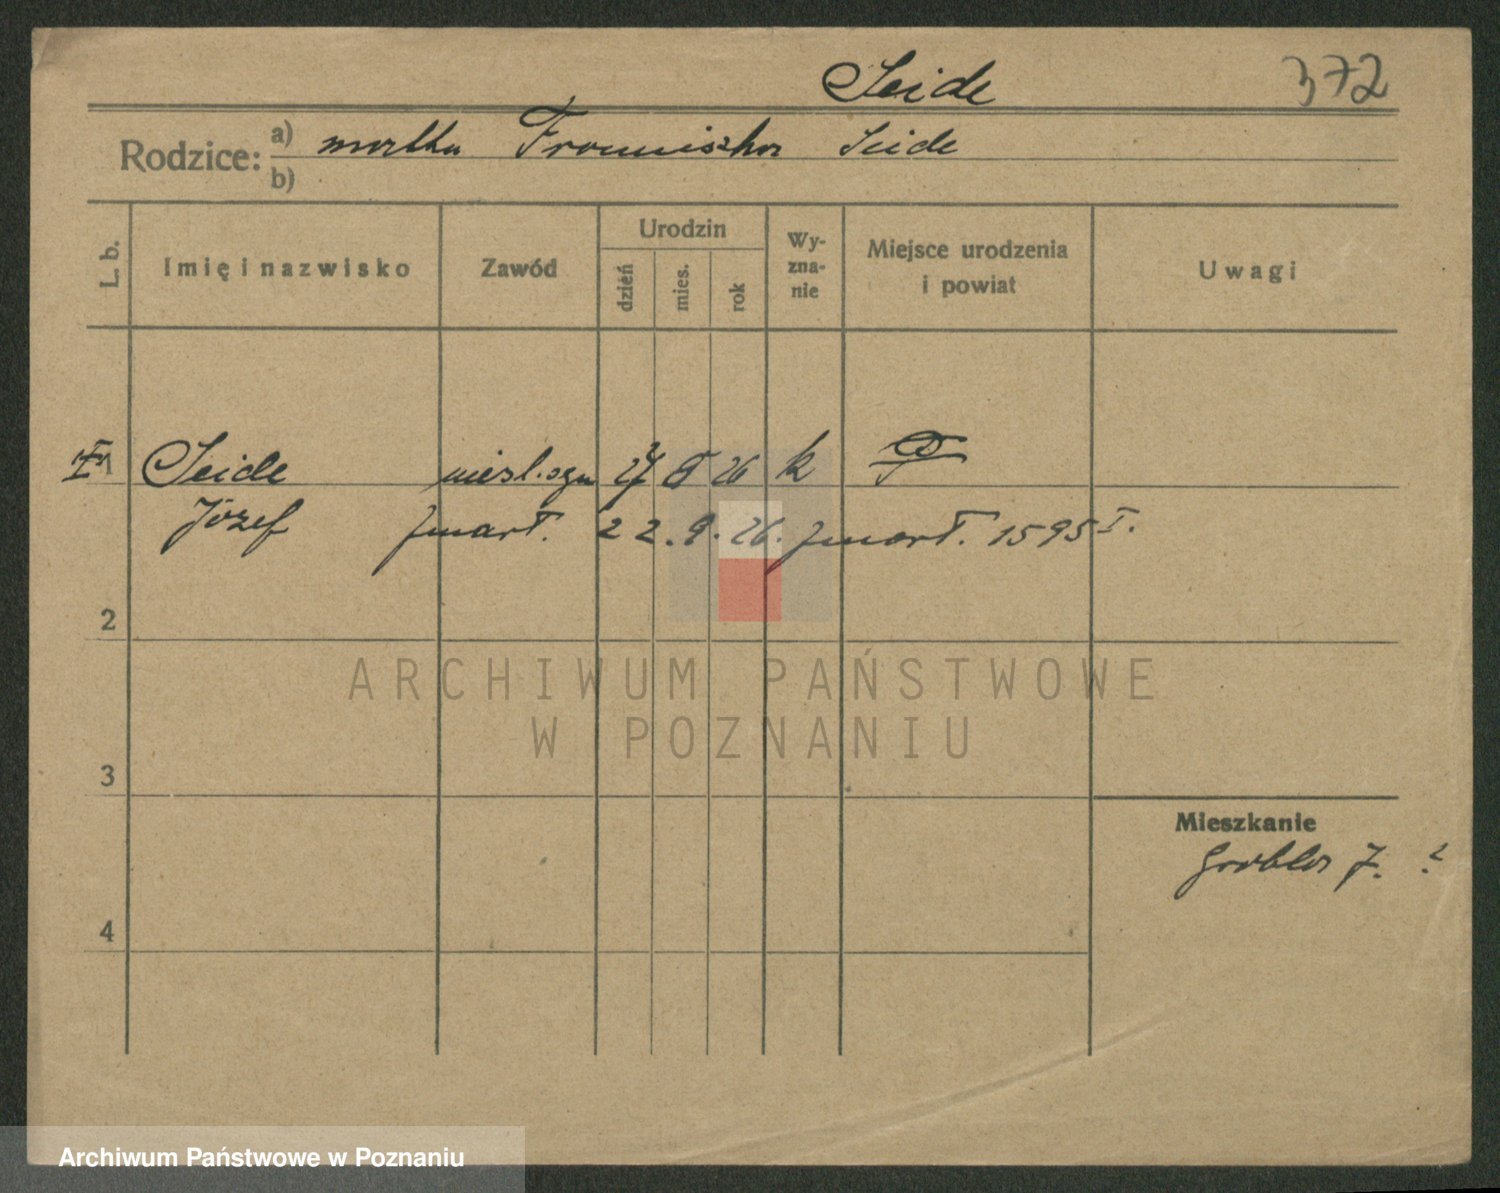 Seide 372
Rodzice: a) matka Franciszka Seide
b)
L. b. Imię i nazwisko Zawód Urodzin dzień mies. rok Wyznanie Miejsce urodzenia i powiat Uwagi
1 Seide 26 k
Józef zmarł. 22.9.26. zmarł. 1595 I.
2
3
4
Mieszkanie
Grobla 7.
ARCHIWUM PAŃSTWOWE
W POZNANIU
Archiwum Państwowe w Poznaniu